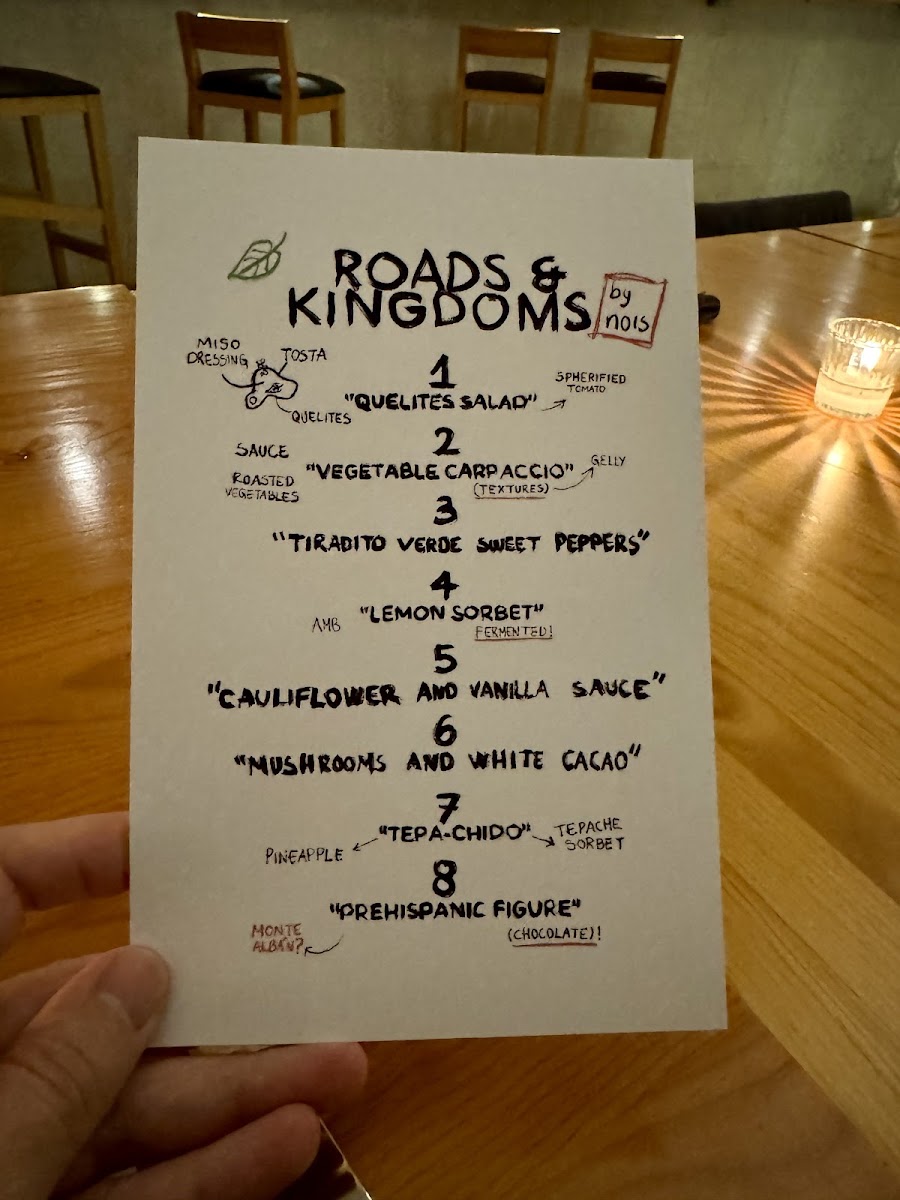 ROADS &
KINGDOMS
by
nois
MISO
DRESSING
TOSTA
QUELITES
1
"QUELITES SALAD"
SPHERIFIED
TOMATO
2
SAUCE
"VEGETABLE CARPACCIO"
GELLY
ROASTED
VEGETABLES
(TEXTURES)
3
"TIRADITO VERDE SWEET PEPPERS"
4
"LEMON SORBET"
AMB
FERMENTED!
5
"CAULIFLOWER AND VANILLA SAUCE"
6
"MUSHROOMS AND WHITE CACAO"
7
"TEPA-CHIDO"
TEPACHE
SORBET
PINEAPPLE
8
"PREHISPANIC FIGURE"
MONTE
ALBÁN?
(CHOCOLATE)!